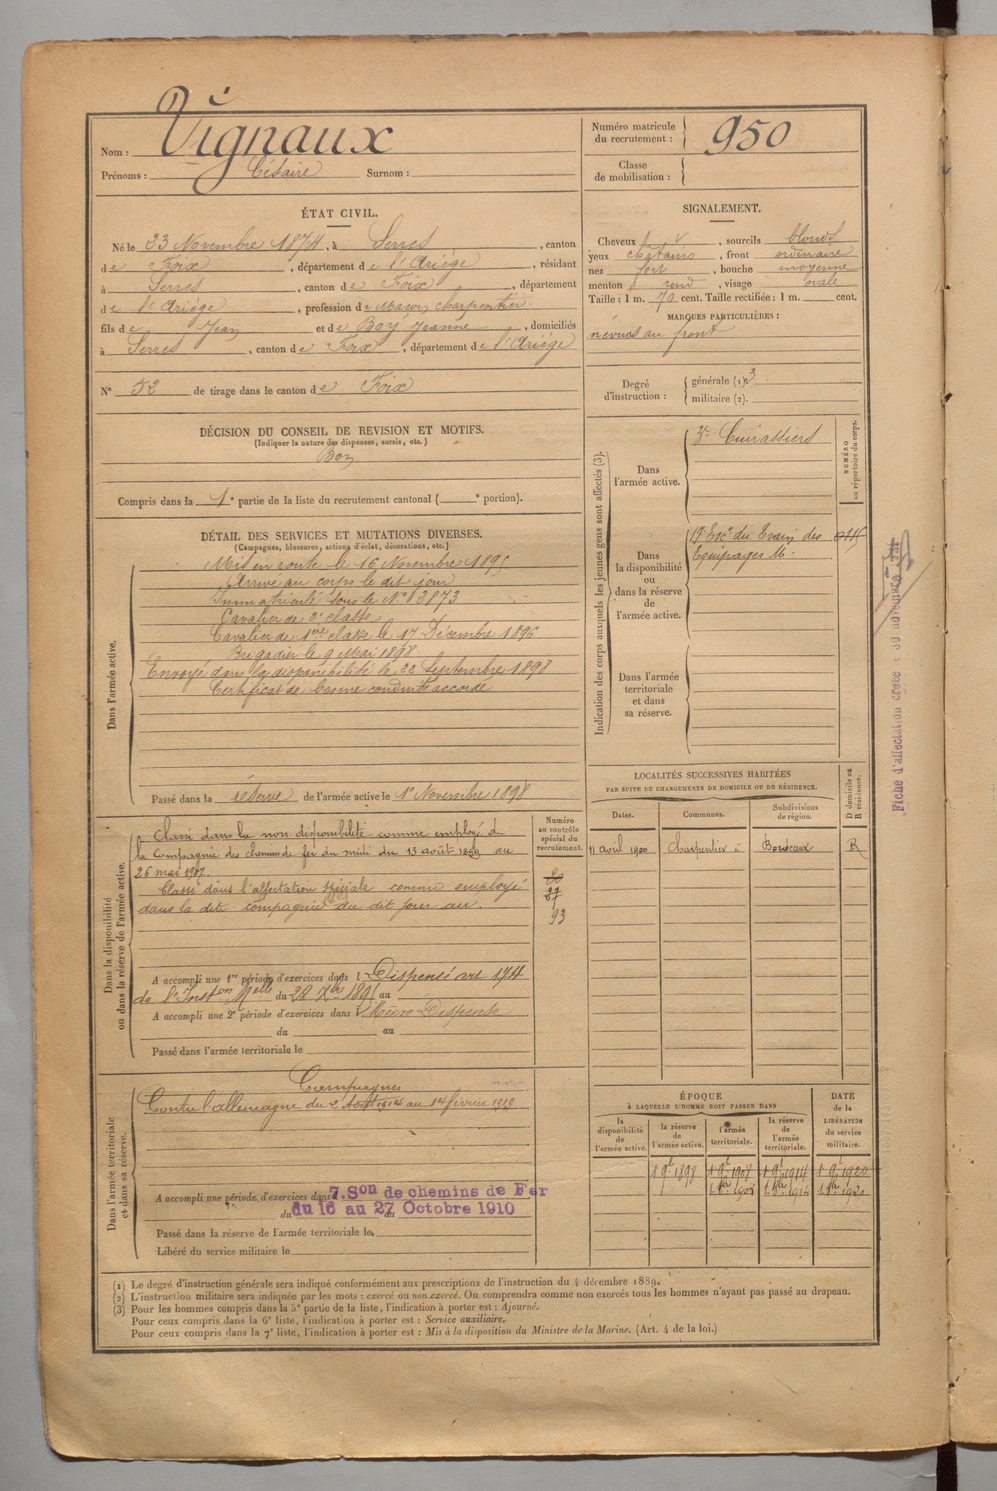 Nom : Vignaux
Prénoms : Césaire Surnom :
Numéro matricule du recrutement : 950
Classe de mobilisation :
ÉTAT CIVIL.
Né le 23 Novembre 1874, à Serres, canton
de Foix, département de l'Ariège, résidant
à Serres, canton de Foix, département
de l'Ariège, profession de Maçon charpentier
fils de Jean et de Boy Jeanne, domiciliés
à Serres, canton de Foix, département de l'Ariège
N° 52 de tirage dans le canton de Foix
SIGNALEMENT.
Cheveux , sourcils blonds
yeux chatains, front ordinaire
nez fort, bouche moyenne
menton rond, visage ovale
Taille : 1 m. 70 cent. Taille rectifiée : 1 m. cent.
MARQUES PARTICULIÈRES :
nævus au front
Degré d'instruction : générale (1). 3
militaire (2).
DÉCISION DU CONSEIL DE REVISION ET MOTIFS.
(Indiquer la nature des dispenses, sursis, etc.)
Bon
Compris dans la 1e partie de la liste du recrutement cantonal ( e portion).
DÉTAIL DES SERVICES ET MUTATIONS DIVERSES.
(Campagnes, blessures, actions d'éclat, décorations, etc.)
Dans l'armée active.
Mis en route le 16 Novembre 1895
Arrivé au corps le dit jour
Immatriculé sous le N° 3873
Cavalier de 2e classe
Cavalier de 1ère classe le 17 Décembre 1896
Brigadier le 9 Mai 1898
Envoyé dans la disponibilité le 22 Septembre 1898
Certificat de bonne conduite accordé
Passé dans la réserve de l'armée active le 1er Novembre 1898
Indication des corps auxquels les jeunes gens sont affectés (3).
NUMÉRO au répertoire du corps.
Dans l'armée active.
3e Cuirassiers
Dans la disponibilité ou dans la réserve de l'armée active.
Esc. du Train des
Equipages M.
Dans l'armée territoriale et dans sa réserve.
Fiche d'affectation créée le 30 novembre
LOCALITÉS SUCCESSIVES HABITÉES
PAR SUITE DE CHANGEMENTS DE DOMICILE OU DE RÉSIDENCE.
Dates. Communes. Subdivisions de région. D domicile ou R résidence.
11 avril 1900 Charpentier à Bordeaux R
Dans la disponibilité ou dans la réserve de l'armée active.
Numéro au contrôle spécial du recrutement.
Classé dans la non disponibilité comme employé à
la Compagnie des chemins de fer du midi du 13 août 1899 au
26 mai 1907.
Classé dans l'affectation spéciale comme employé
dans la dite compagnie du dit jour au
93
A accompli une 1re période d'exercices dans l Dispensé art 174
de l'Inston Melle du 28 Xbre 1895 au
A accompli une 2e période d'exercices dans l Même Dispense
du au
Passé dans l'armée territoriale le
Dans l'armée territoriale et dans sa réserve.
Campagnes
Contre l'allemagne du 2 Août 1914 au 14 février 1919
A accompli une période d'exercices dans 7. Son de chemins de Fer
du 16 au 27 Octobre 1910
Passé dans la réserve de l'armée territoriale le
Libéré du service militaire le
ÉPOQUE
À LAQUELLE L'HOMME DOIT PASSER DANS
DATE de la LIBÉRATION du service militaire.
la disponibilité de l'armée active. la réserve de l'armée active. l'armée territoriale. la réserve de l'armée territoriale.
1 9e 1898 1 9e 1908 1 9e 1914 1 9e 1920
(1) Le degré d'instruction générale sera indiqué conformément aux prescriptions de l'instruction du 4 décembre 1889.
(2) L'instruction militaire sera indiquée par les mots : exercé ou non exercé. On comprendra comme non exercés tous les hommes n'ayant pas passé au drapeau.
(3) Pour les hommes compris dans la 5e partie de la liste, l'indication à porter est : Ajourné.
Pour ceux compris dans la 6e liste, l'indication à porter est : Service auxiliaire.
Pour ceux compris dans la 7e liste, l'indication à porter est : Mis à la disposition du Ministre de la Marine. (Art. 4 de la loi.)